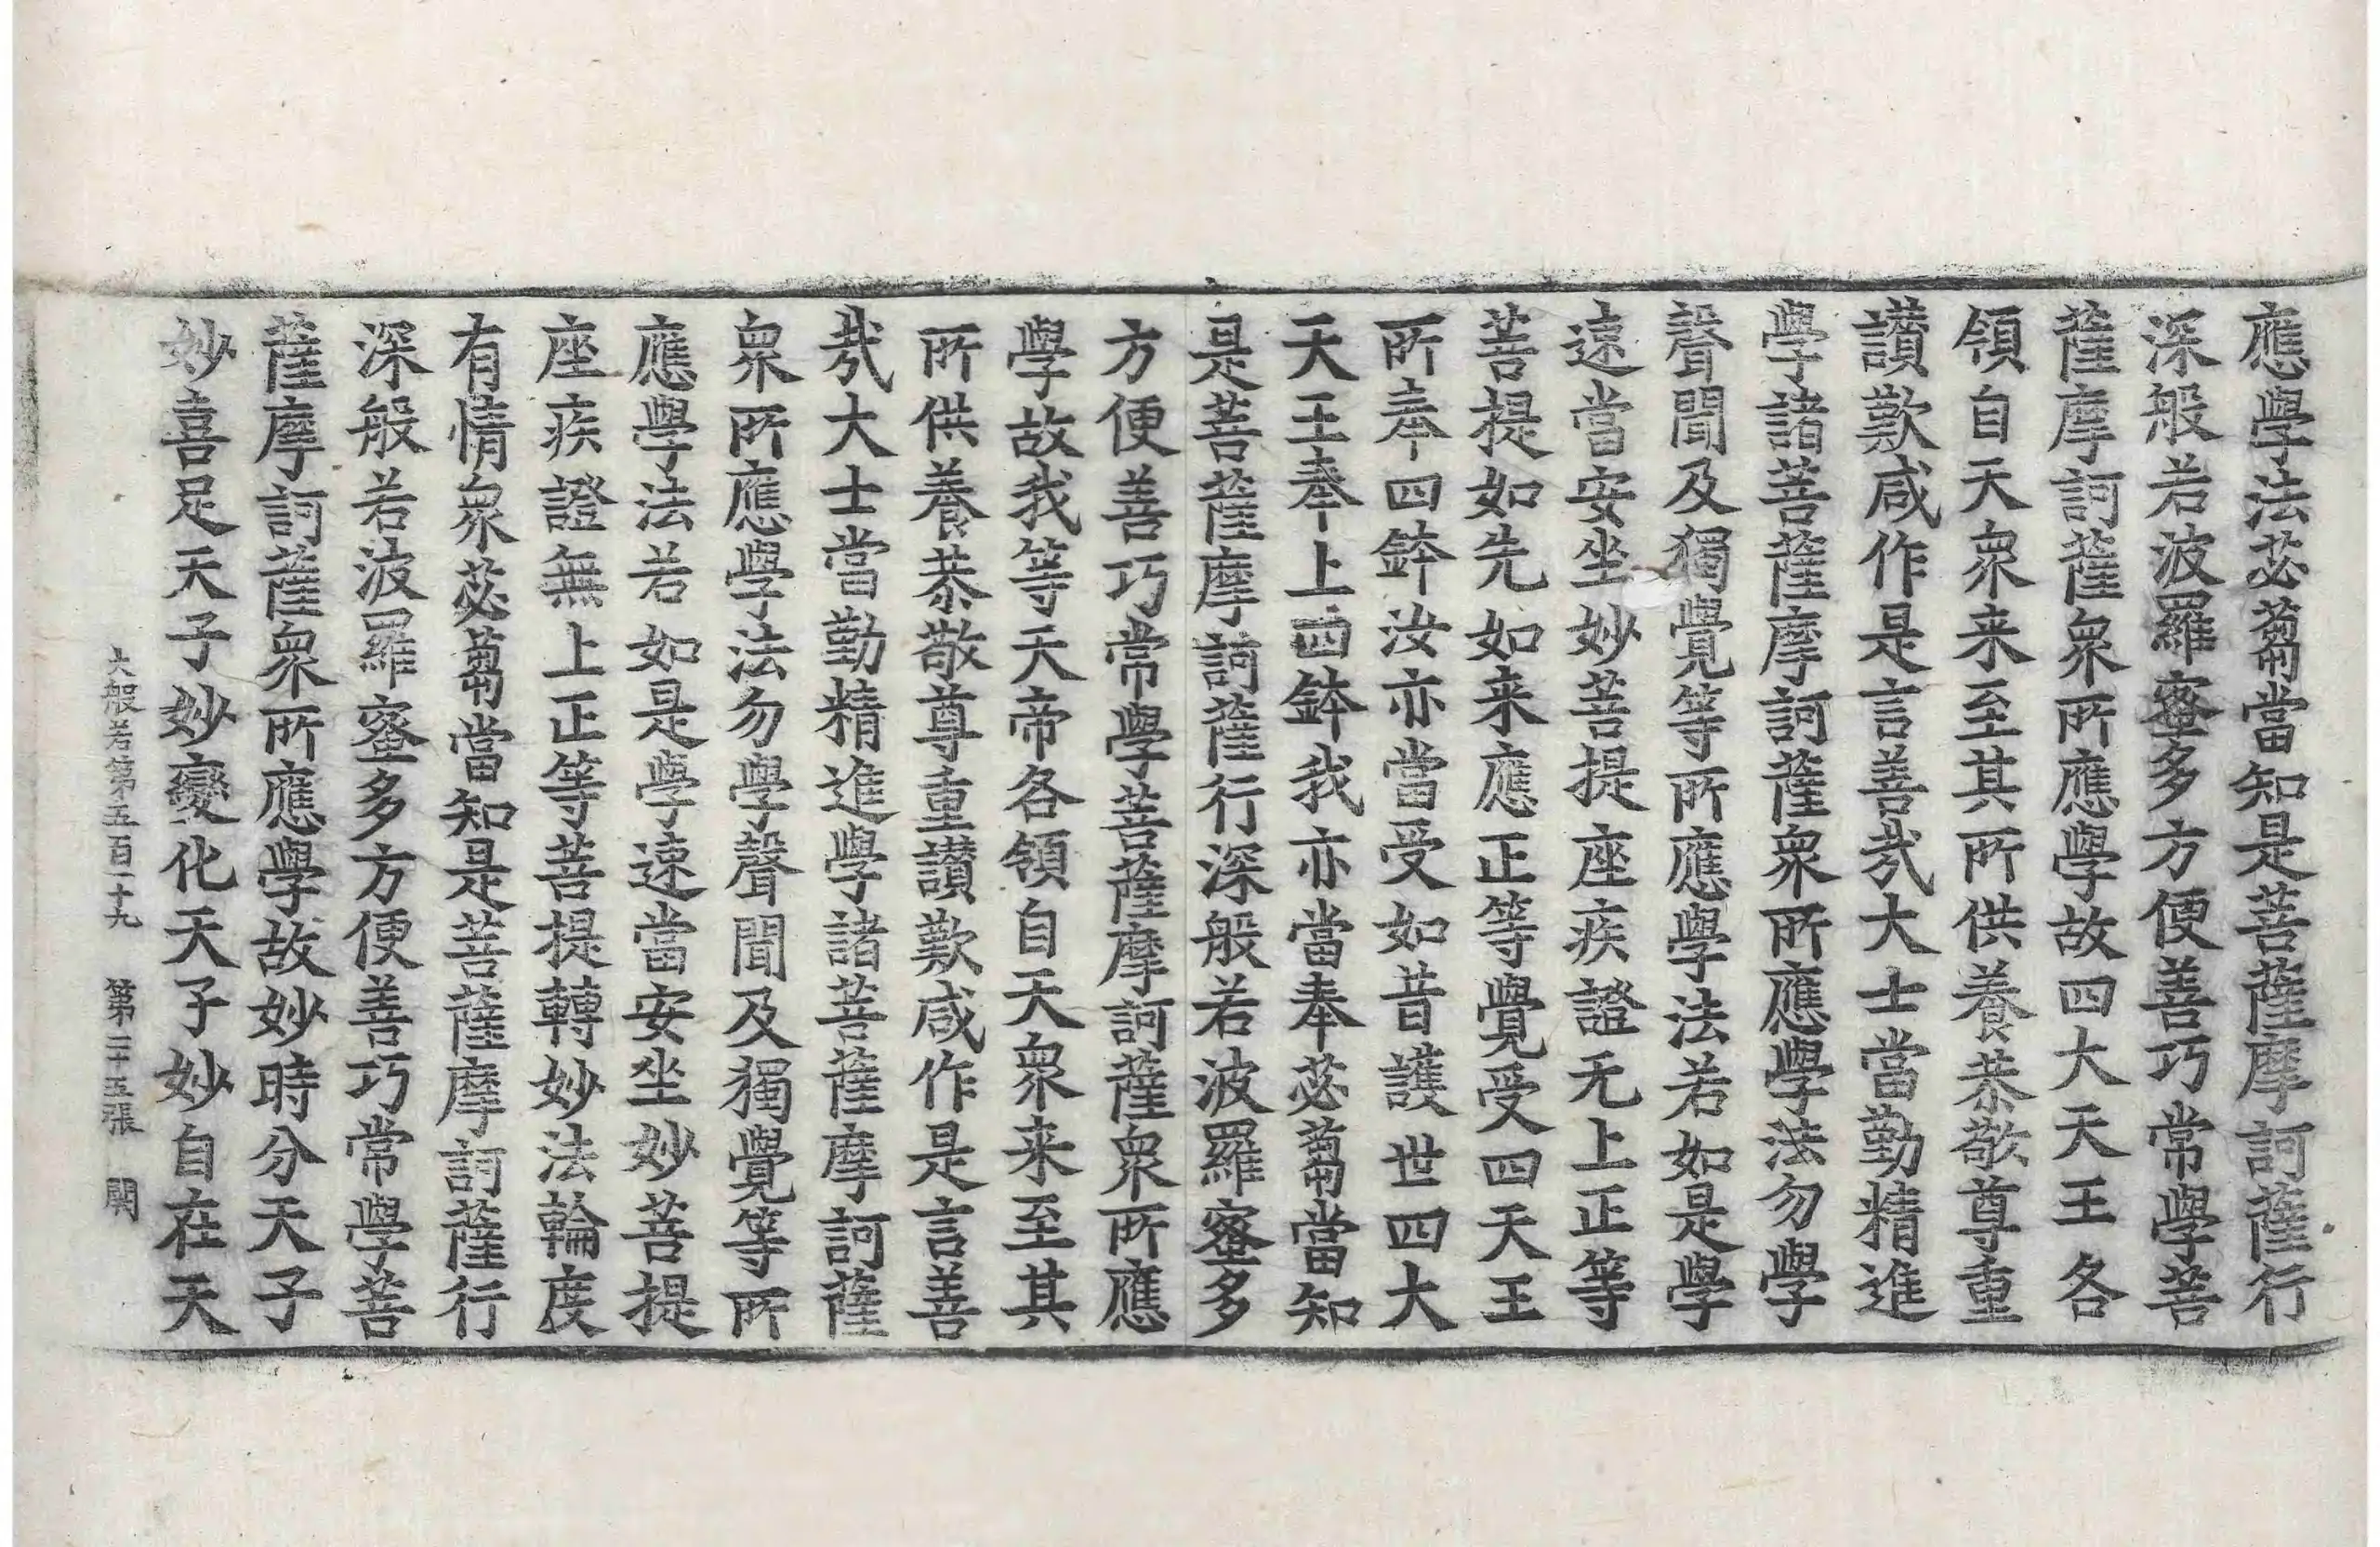 應學法苾蒭當知是菩薩摩訶薩行
深般若波羅蜜多方便善巧常學菩
薩摩訶薩衆所應學故四大天王各
領自天衆来至其所供養恭敬尊重
讃歎咸作是言善㢤大士當勤精進
學諸菩薩摩訶薩衆所應學法勿學
聲聞及獨覺等所應學法若如是學
速當安坐妙菩提座疾證无上正等
菩提如先如来應正等覺受四天王
所奉四鉢汝亦當受如昔護世四大
天王奉上四鉢我亦當奉苾蒭當知
是菩薩摩訶薩行深般若波羅蜜多
方便善巧常學菩薩摩訶薩衆所應
學故我等天帝各領自天衆来至其
所供養恭敬尊重讃歎咸作是言善
㢤大士當勤精進學諸菩薩摩訶薩
衆所應學法勿學聲聞及獨覺等所
應學法若如是學速當安坐妙菩提
座疾證無上正等菩提轉妙法輪度
有情衆苾蒭當知是菩薩摩訶薩行
深般若波羅蜜多方便善巧常學菩
薩摩訶薩衆所應學故妙時分天子
妙喜足天子妙變化天子妙自在天
大般若第五百一十九 第二十五張 関